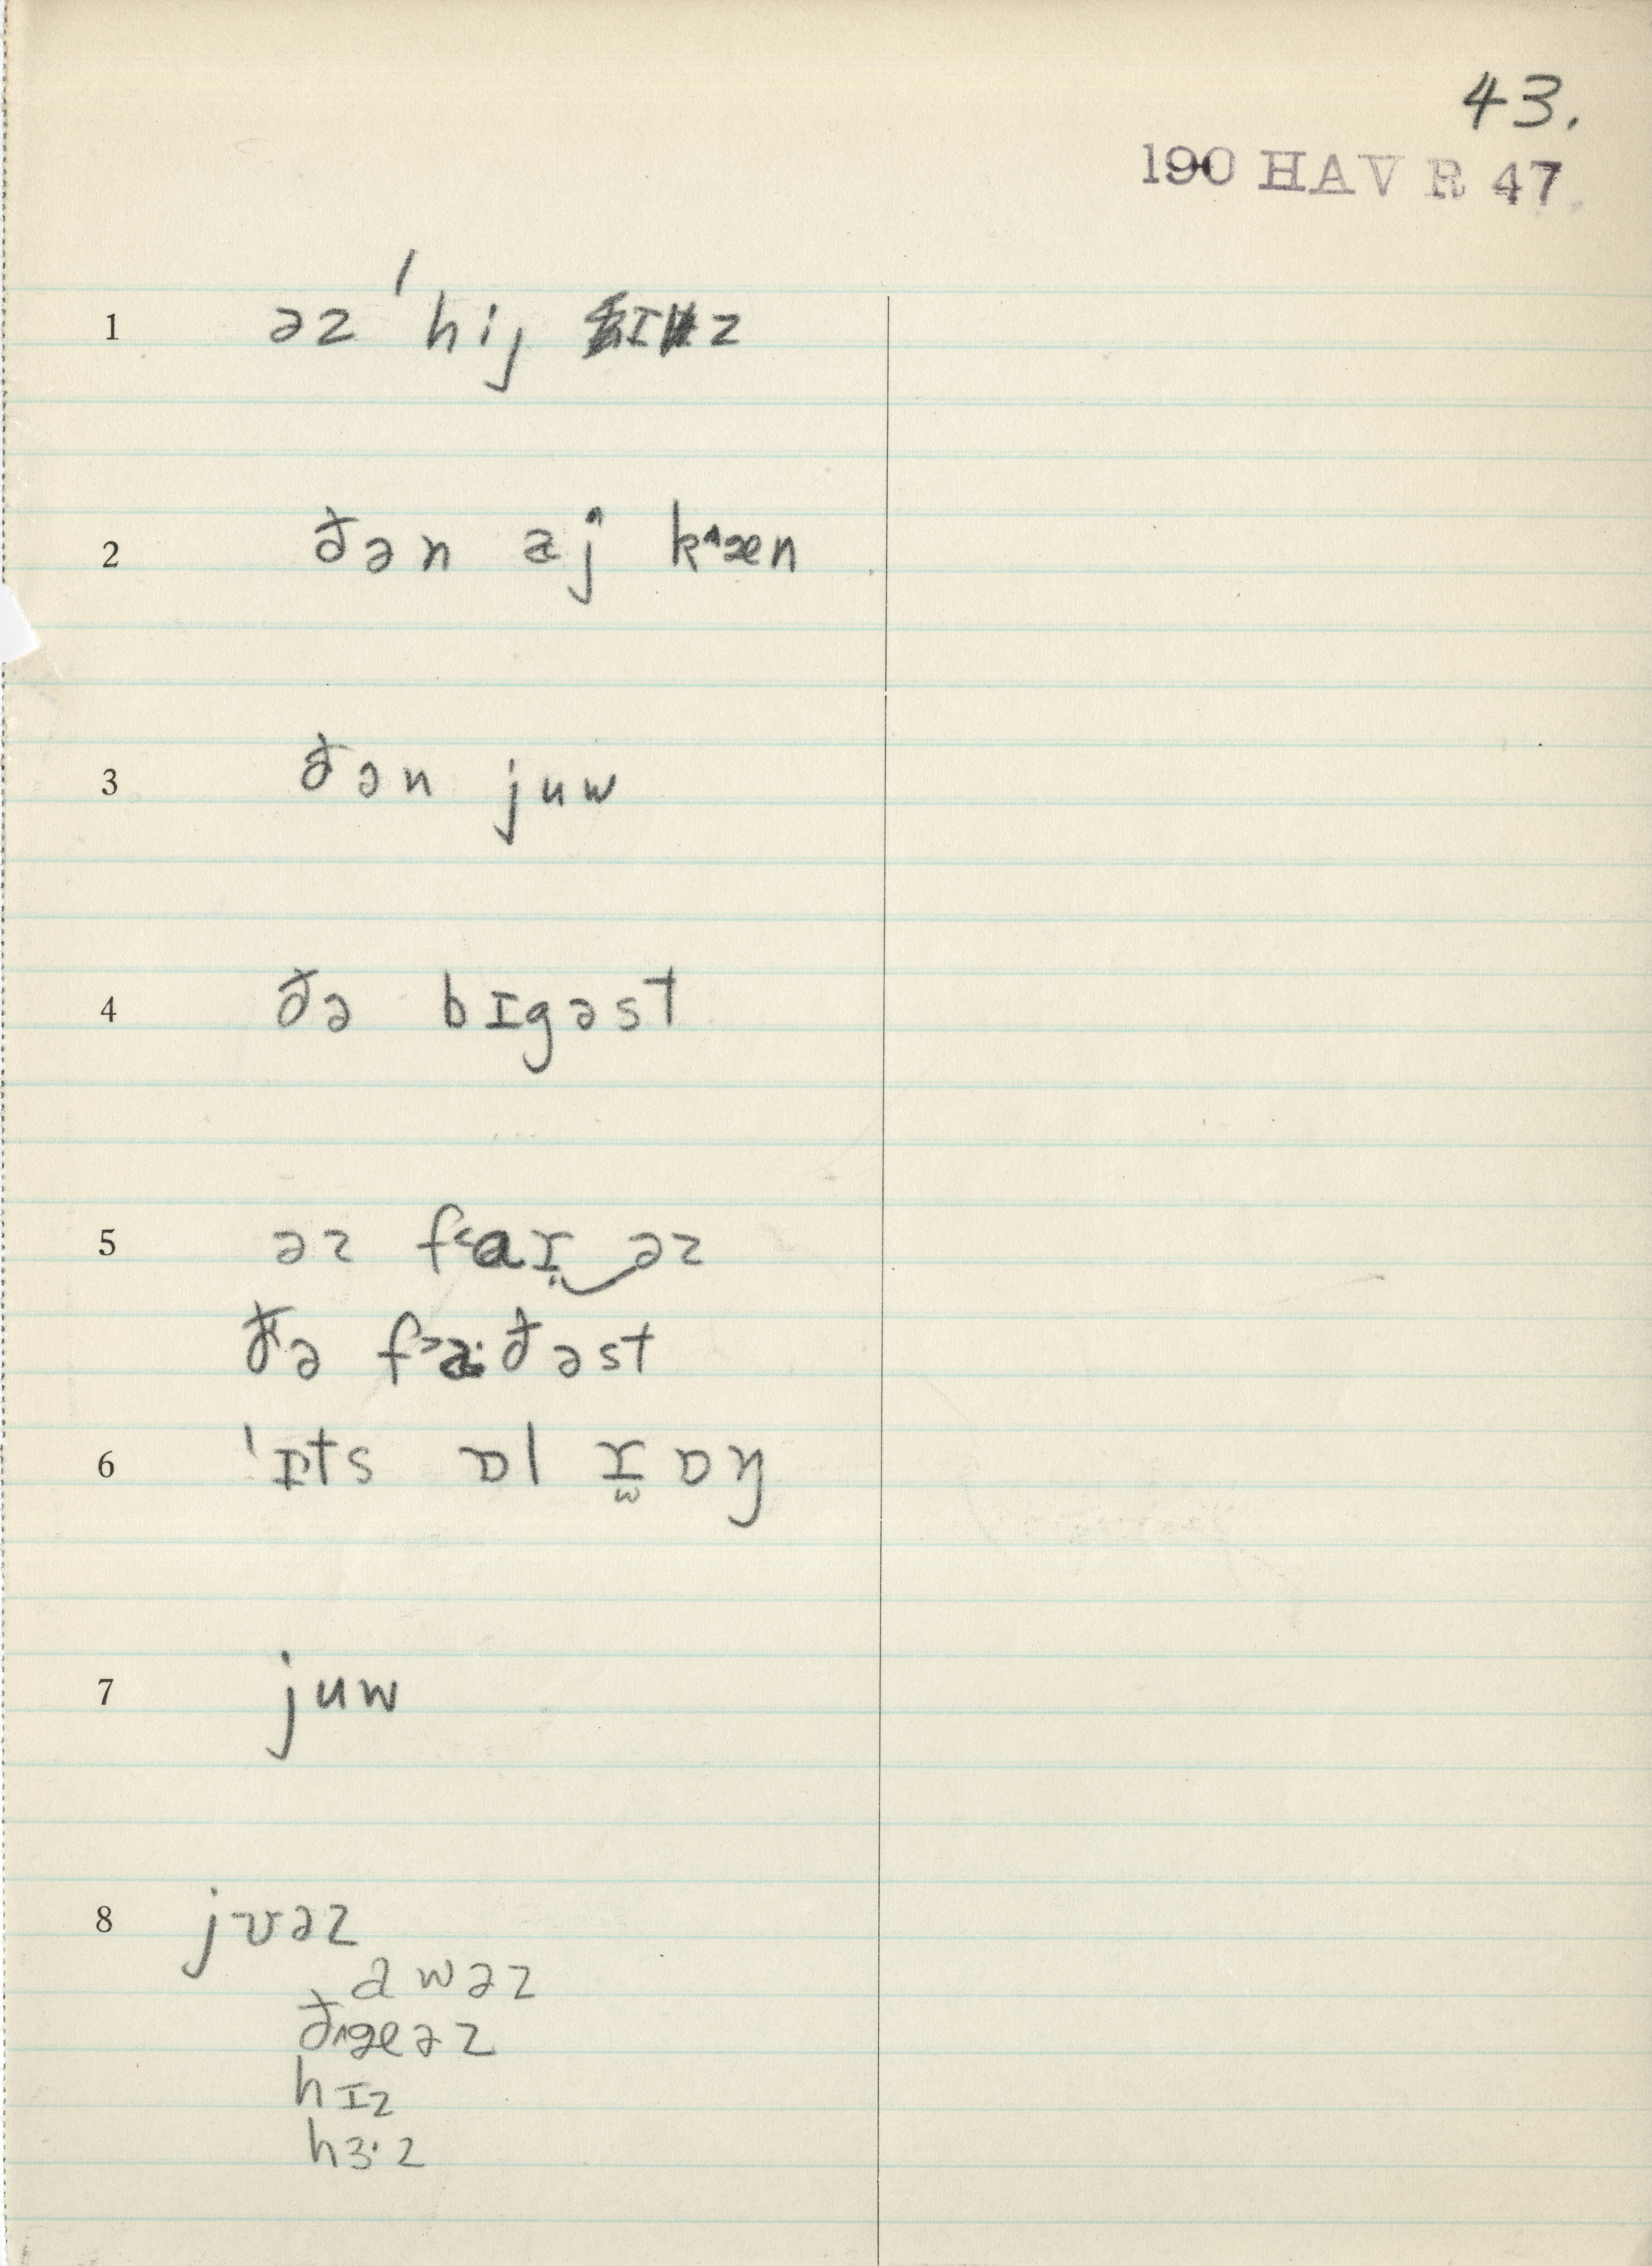 43.
190 HAV R 47
1 əz ˈhij ɪz
2 ðən aj k˄æn
3 ðən juw
4 ðə bɪgəst
5 əz f˂aɹ‿əz
ðə f˃a·ðəst
6 ˈɪts ɒl ɹ̫ɒŋ
7 juw
8 jʊəz
awəz
ð˄æəz
hɪz
hɜ·z